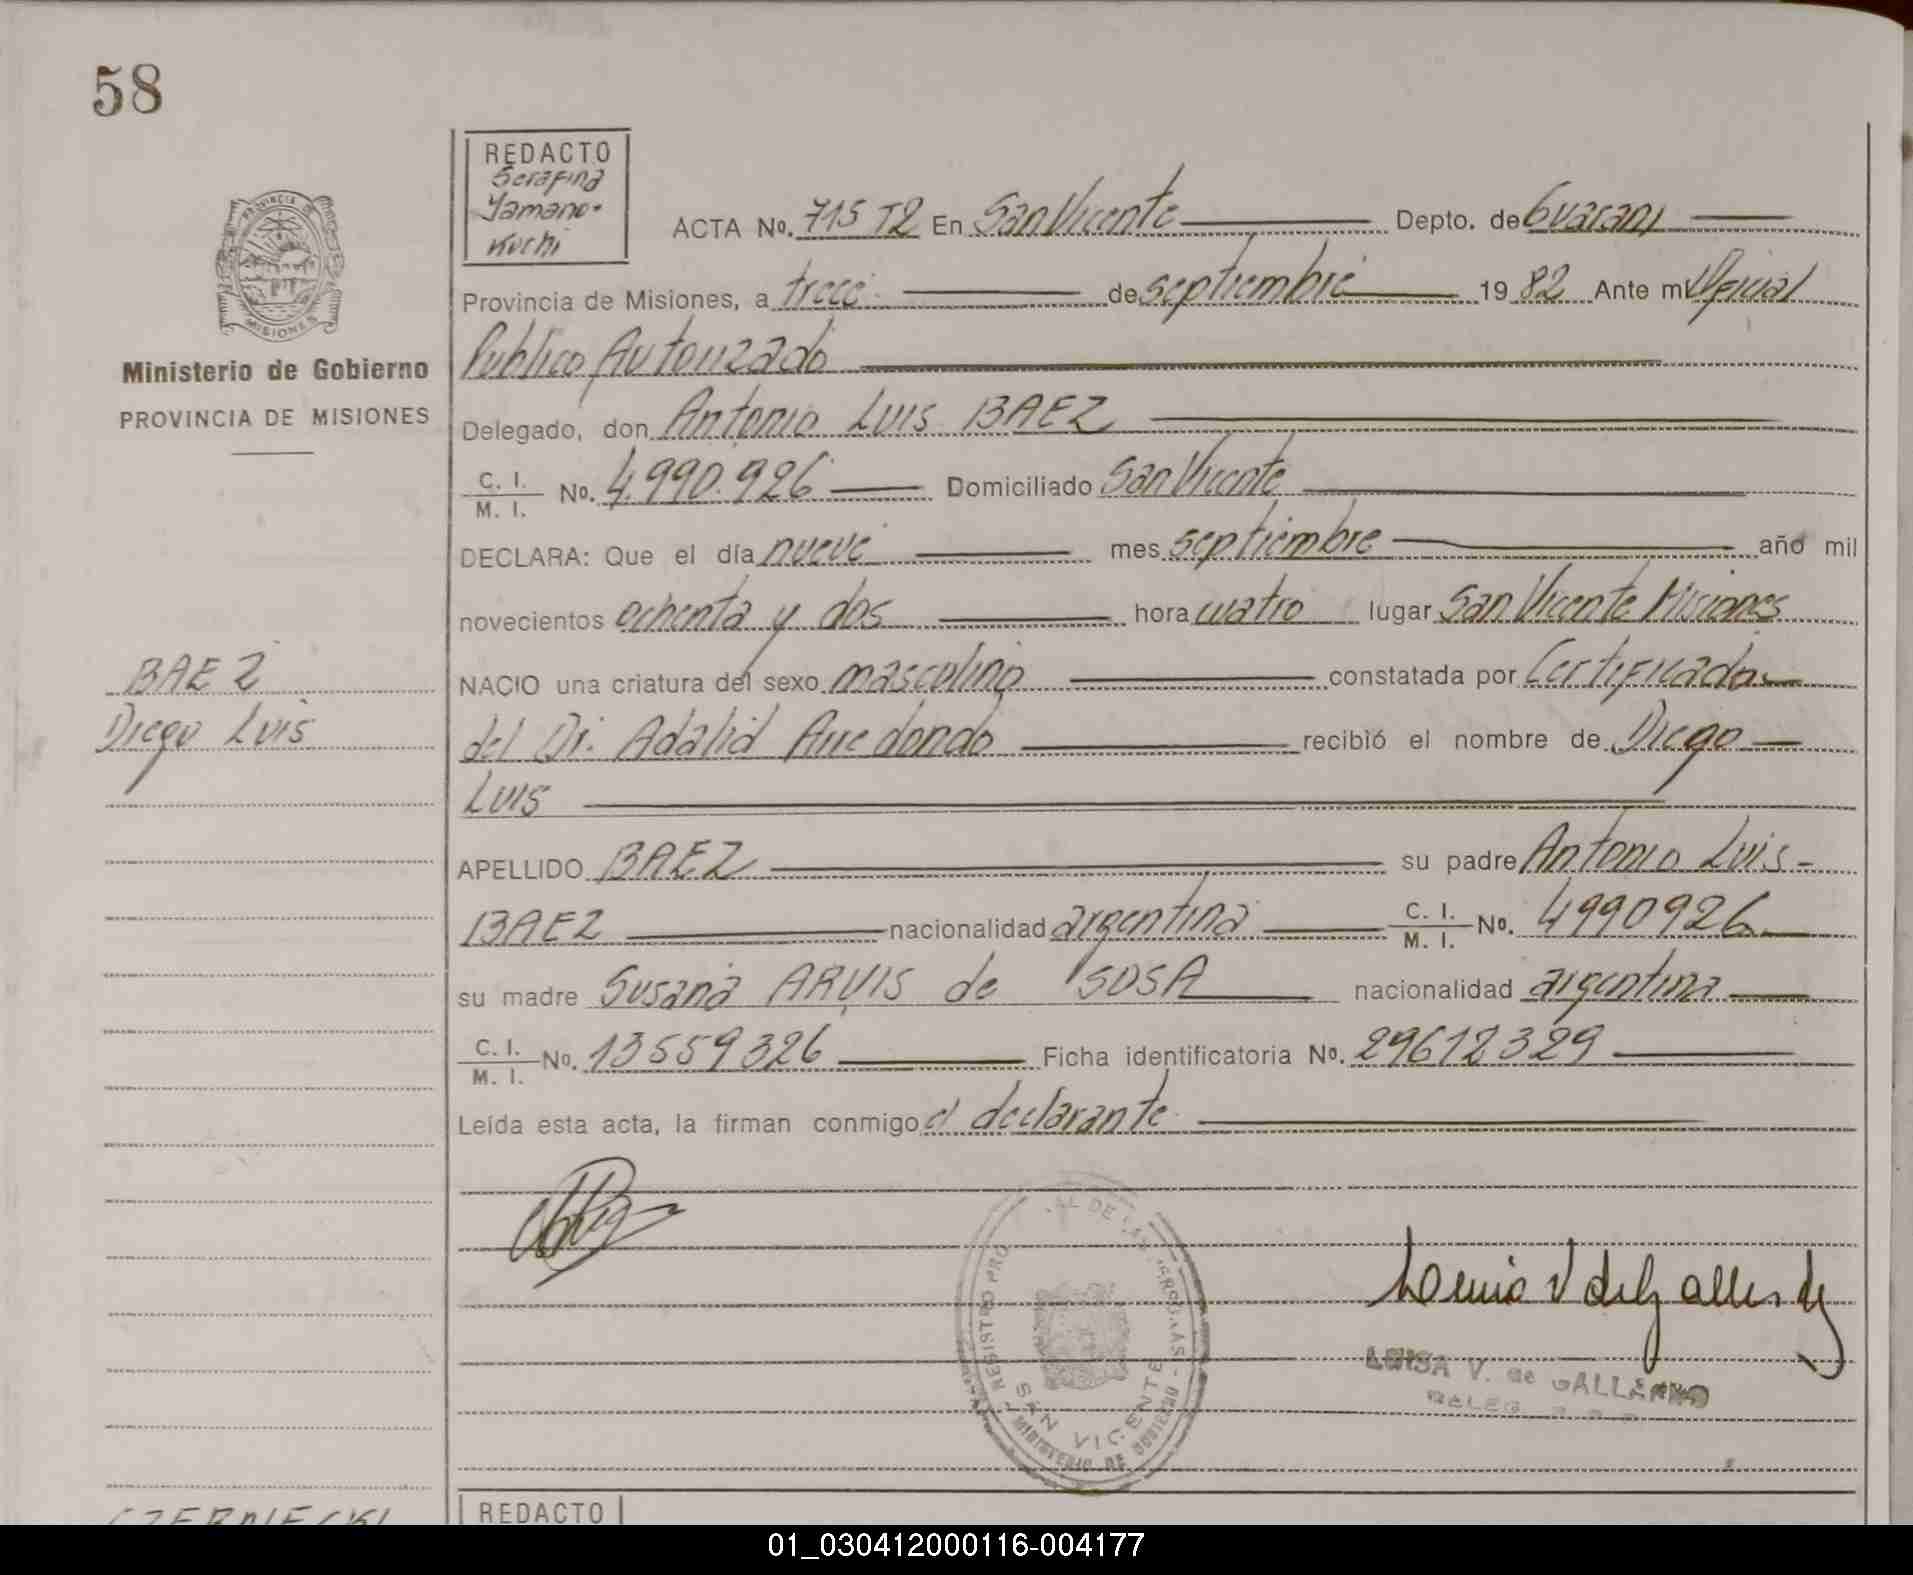 58
REDACTO
Serafina
Yamano-
Kuchi
PROVINCIA DE
MISIONES
Ministerio de Gobierno
PROVINCIA DE MISIONES
ACTA No. 715 T2 En San Vicente Depto. de Guarani
Provincia de Misiones, a trece de septiembre 1982 Ante mi Oficial
Publico Autorizado
Delegado, don Antonio Luis BAEZ
C. I.
M. I. No. 4.990.926 Domiciliado San Vicente
DECLARA: Que el día nueve mes septiembre año mil
novecientos ochenta y dos hora cuatro lugar San Vicente Misiones
BAEZ
Diego Luis
NACIO una criatura del sexo masculino constatada por Certificado
del Dr. Adalid Arredondo recibió el nombre de Diego
Luis
APELLIDO BAEZ su padre Antonio Luis -
BAEZ nacionalidad argentina C. I.
M. I. No. 4990926
su madre Susana de SOSA nacionalidad argentina
C. I.
M. I. No. 13559326 Ficha identificatoria No. 29612329
Leída esta acta, la firman conmigo el declarante
REGISTRO PRO AL DE LAS PERSONAS -
SAN VICENTE
MINISTERIO DE GOBIERNO
LUISA V. de GALLARDO
REDACTO
01_030412000116-004177